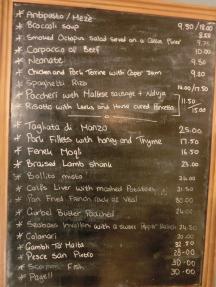 * Antipasto / Meze
* Broccoli soup 9.50 / 18.00
* Smoked Octopus salad served on a 8.50
* Carpaccio of Beef 10.00
* Neonate 9.50
* Chicken and Pork Terrine with Caper Jam 9.80
* Spaghetti Rizzi
* Paccheri with Maltese sausage + Nduja
* Risotto with Leeks and House cured Pancetta 11.50 / 15.00
* Tagliata di Manzo 25.00
* Pork Fillets with honey and Thyme 17.50
* Fenek Moqli 16.50
* Braised Lamb shank 23.00
* Bollito misto 24.00
* Calfs Liver with mashed Potatoes 21.50
* Pan Fried 24.50
* Butter Poached 24.00
* with a sweet Pepper 24.50
* Calamari 20.00
* Gambli Ta' Malta 32.50
* Pesce San Pietro 28.00
* Fish 30.00
* Pagell 30.00